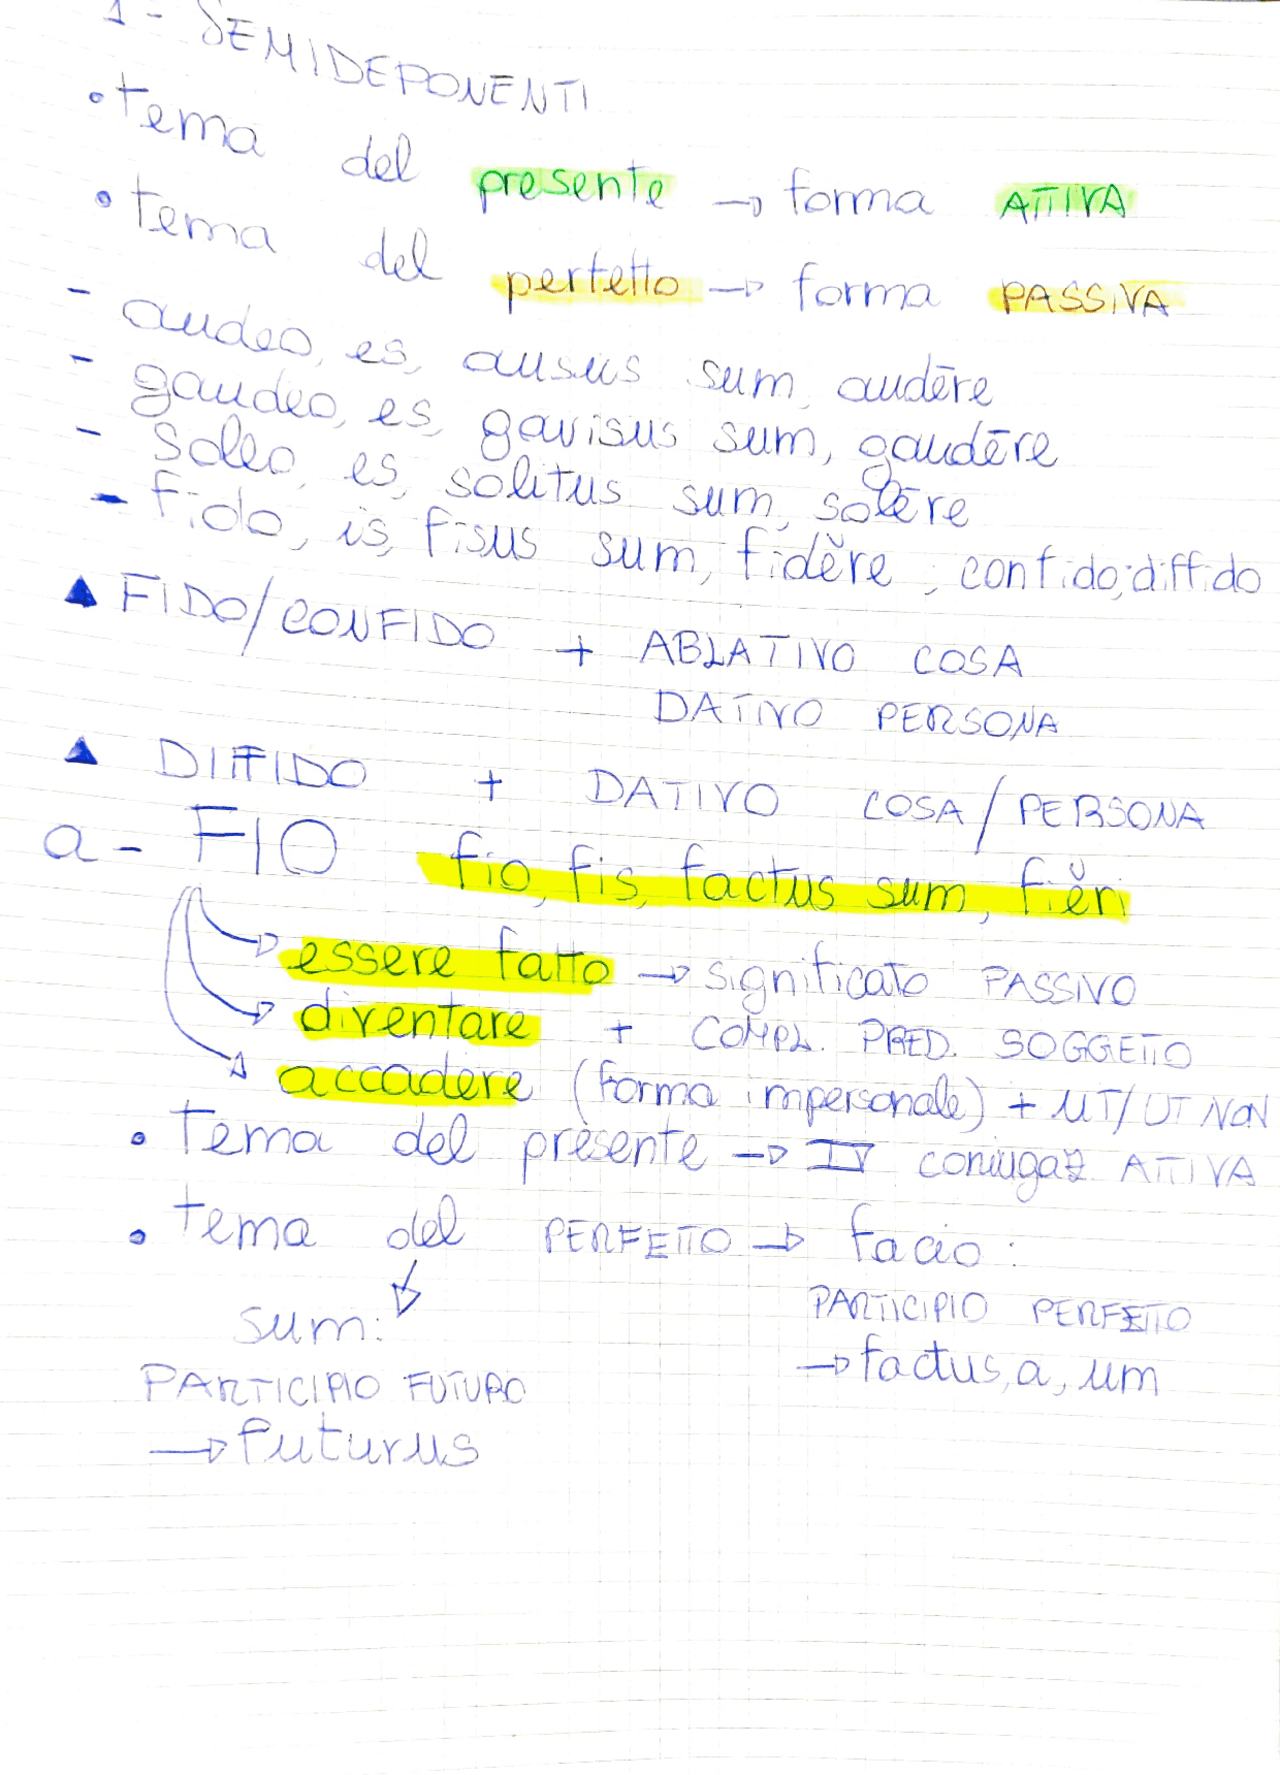 1 - SEMIDEPONENTI
• tema del presente → forma ATTIVA
• tema del perfetto → forma PASSIVA
- audeo, es, ausus sum, audēre
- gaudeo, es, gavisus sum, gaudēre
- soleo, es, solitus sum, solēre
- fido, is, fisus sum, fidĕre ; confido; diffido
▲ FIDO/CONFIDO + ABLATIVO COSA
DATIVO PERSONA
▲ DIFFIDO + DATIVO COSA/PERSONA
a - FIO fio, fis, factus sum, fiĕri
→ essere fatto → significato PASSIVO
→ diventare + COMPL. PRED. SOGGETTO
→ accadere (forma impersonale) + UT/UT NON
• tema del presente → IV coniugaz. ATTIVA
• tema del PERFETTO → facio :
sum:
PARTICIPIO FUTURO
→ futurus
PARTICIPIO PERFETTO
→ factus, a, um